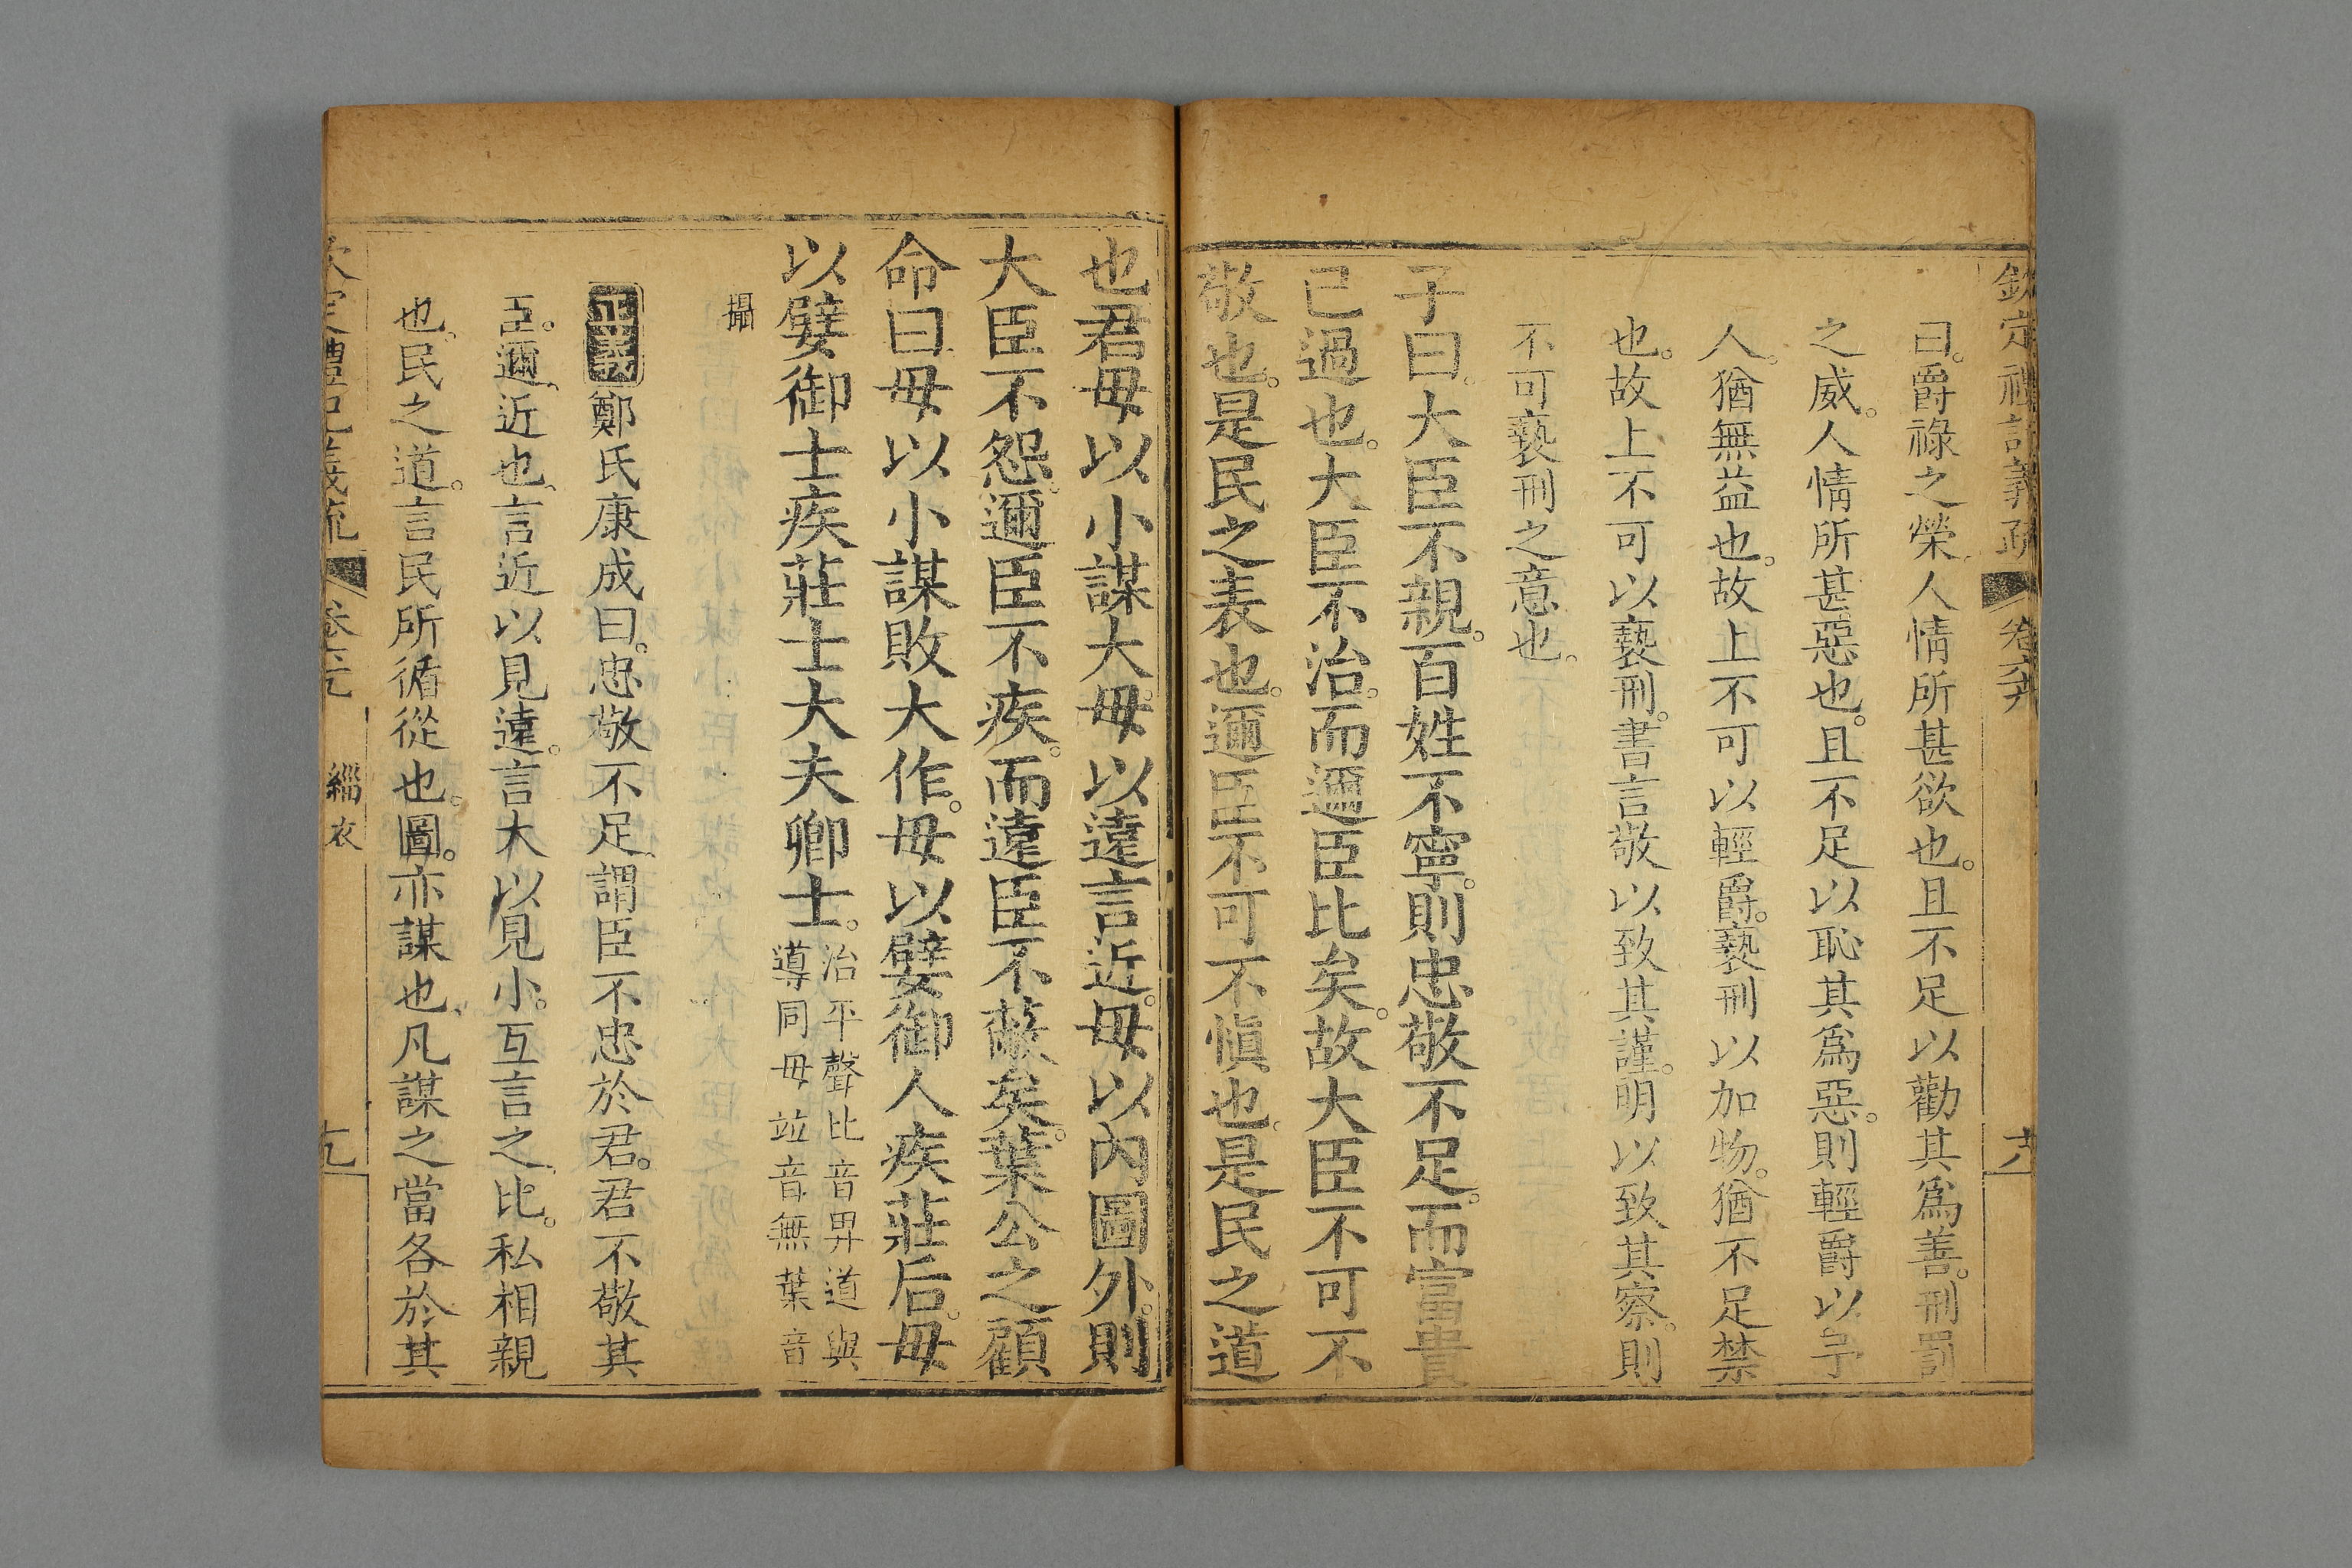 欽定禮記義疏 卷六九 十八
曰。爵祿之榮。人情所甚欲也。且不足以勸其爲善。刑罰
之威。人情所甚惡也。且不足以恥其爲惡。則輕爵以予
人。猶無益也。故上不可以輕爵。褻刑以加物。猶不足禁
也。故上不可以褻刑。書言敬以致其謹。明以致其察。則
不可褻刑之意也。
子曰。大臣不親。百姓不寧。則忠敬不足。而富貴
已過也。大臣不治。而邇臣比矣。故大臣不可不
敬也。是民之表也。邇臣不可不愼也。是民之道
也君毋以小謀大。毋以遠言近。毋以內圖外。則
大臣不怨。邇臣不疾。而遠臣不蔽矣。葉公之顧
命曰毋以小謀敗大作。毋以嬖御人疾莊后。毋
以嬖御士疾莊士大夫卿士。
治平聲比音畀道與
導同毋竝音無葉音
攝
正義鄭氏康成曰。忠敬不足。謂臣不忠於君。君不敬其
臣。邇近也。言近以見遠。言大以見小。互言之。比。私相親
也。民之道。言民所循從也。圖。亦謀也。凡謀之當各於其
欽定禮記義疏 卷六九 緇衣 十九